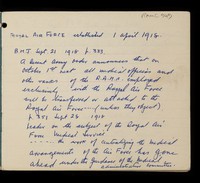 ROYAL AIR FORCE established 1 April 1918.
B.M.J. Sept. 21 1918 p. 333
A recent army order announces that on
October 1st next all medical officers and
other ranks of the R.A.M.C. employed
exclusively with the Royal Air Force
will be transferred or attached to the
Royal Air Force
p. 351 Sept 28 1918
leader on the subject of the Royal Air
Force medical service
the work of establishing the medical
arrangements of the Air Force has gone
ahead under the guidance of the medical
administrative committee.